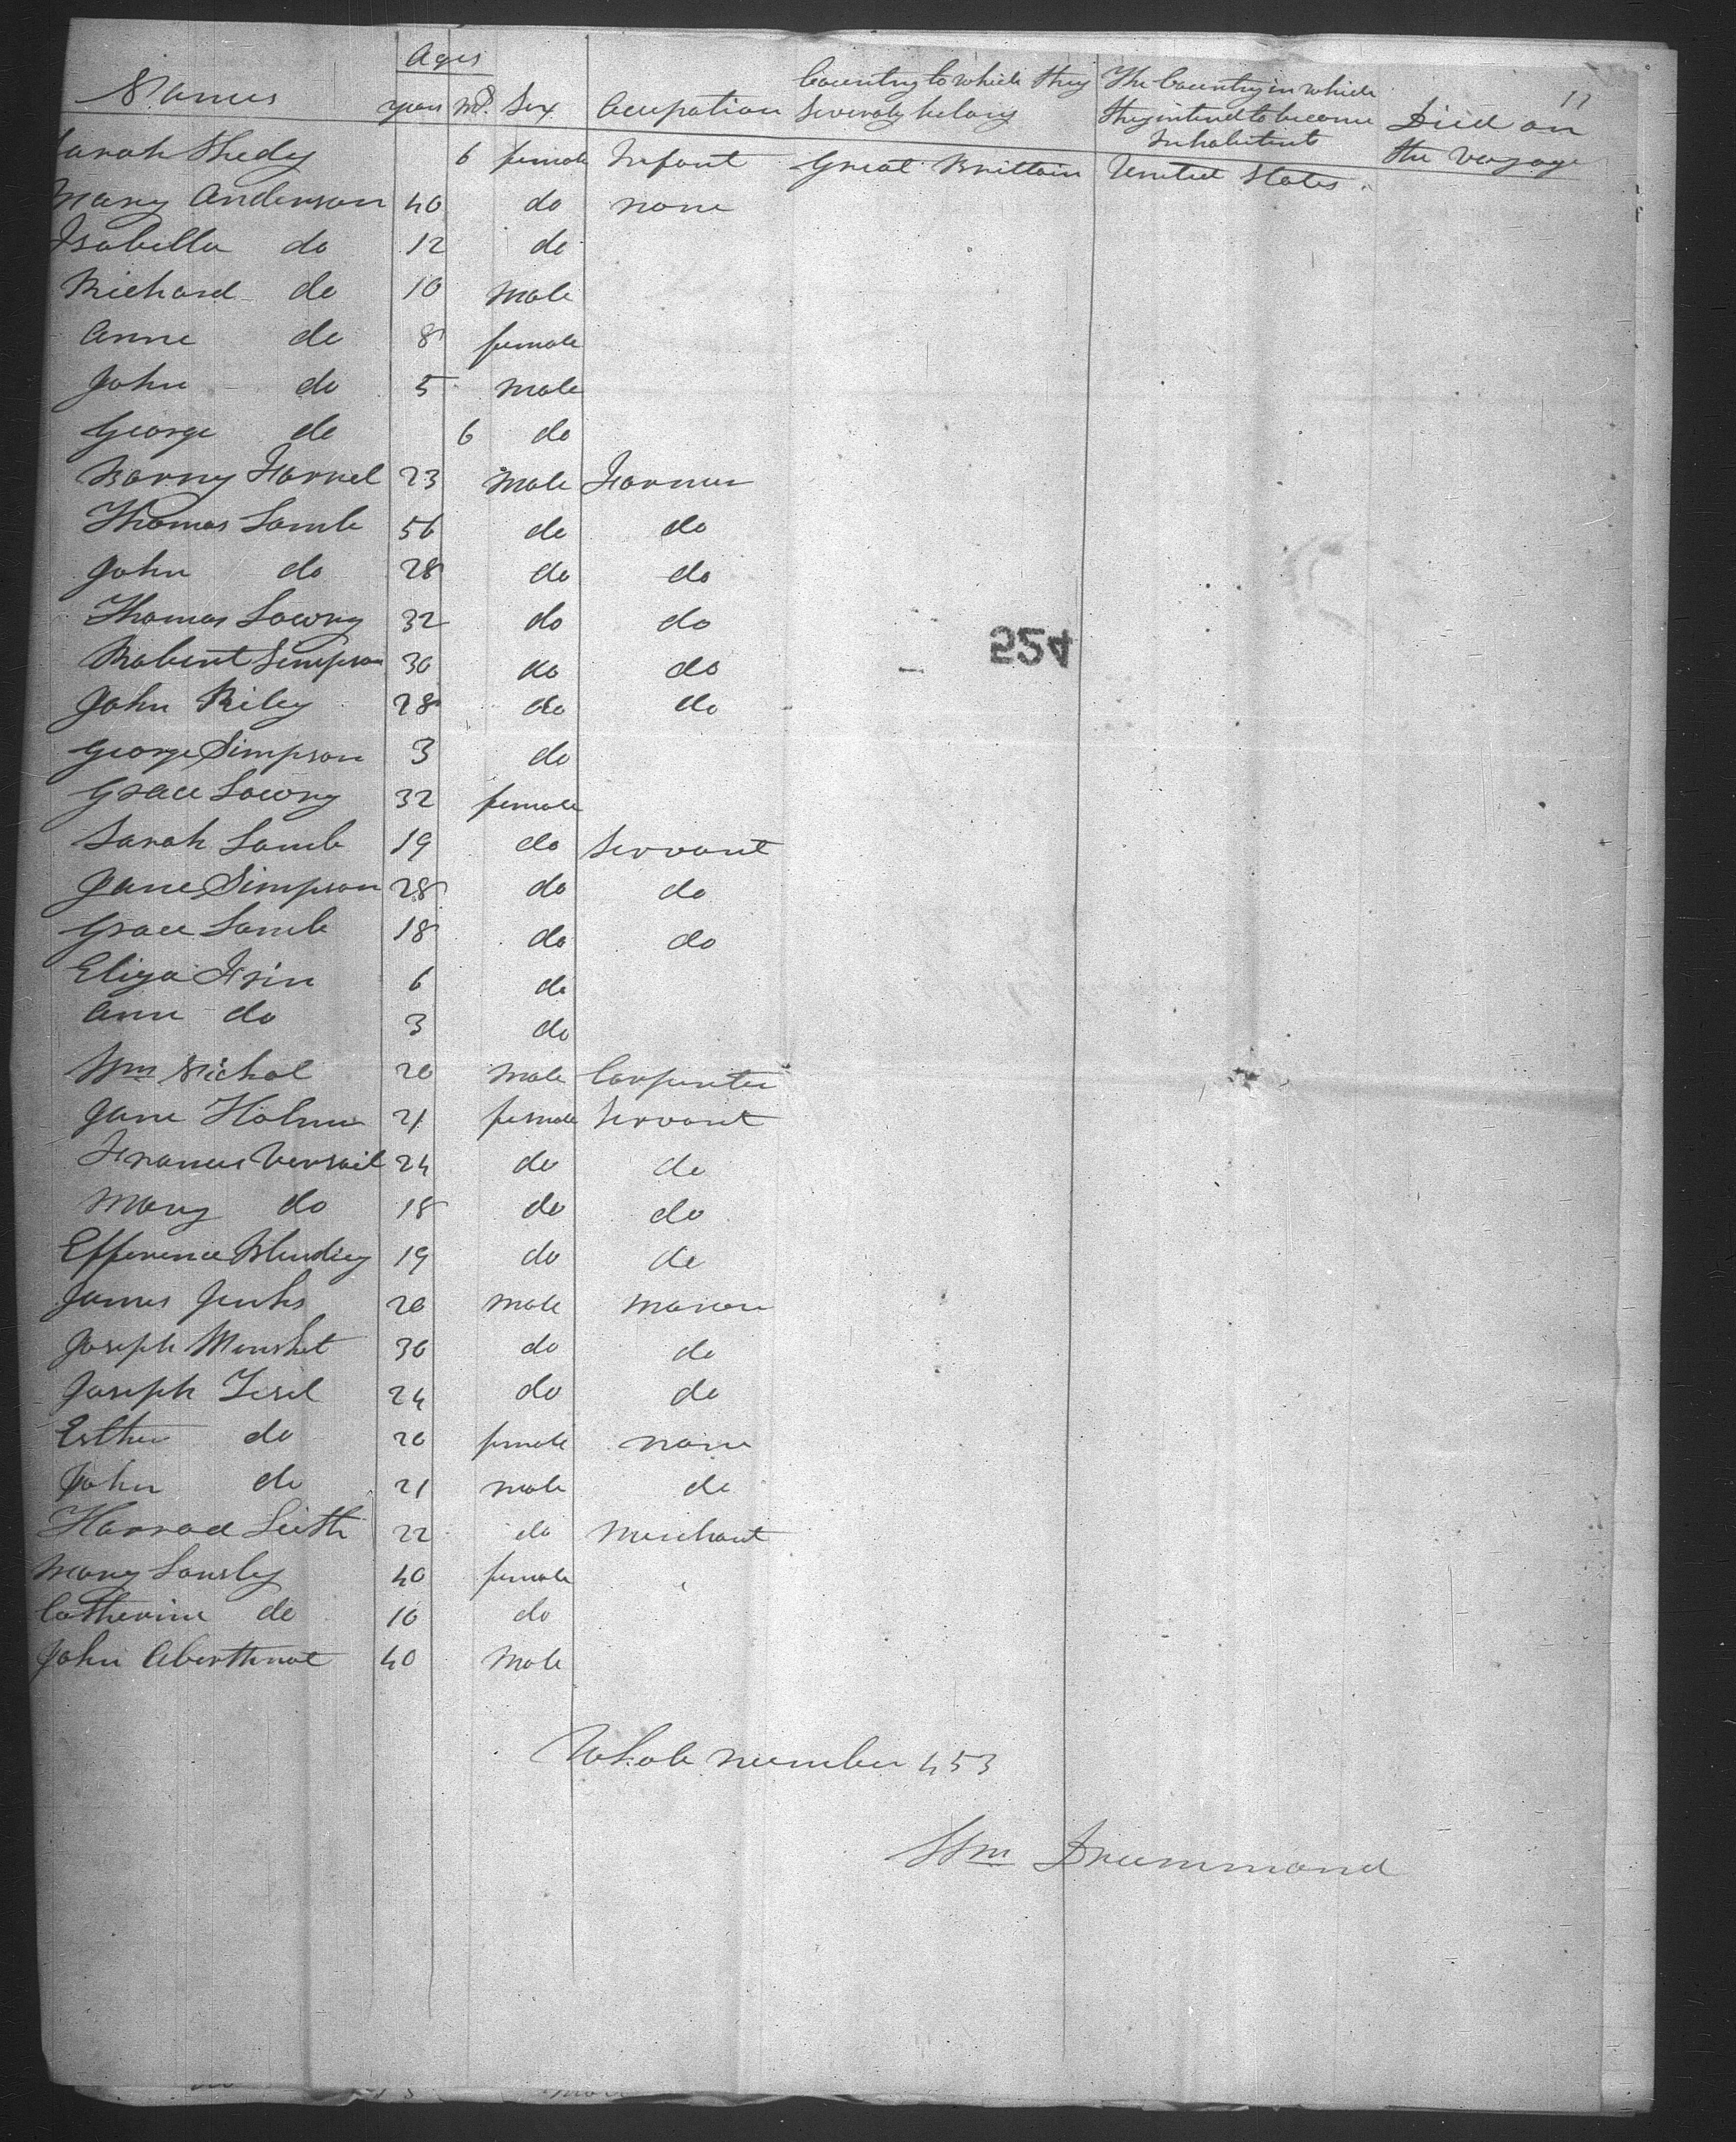 Ages
Names years Ms. Sex Occupation Country to which they severaly belong The Country in which they intend to become Inhabitants Died on the Voyage
17
Sarah Shedy 6 female Infant Great Brittain United States
Mary Anderson 40 do none
Isabella do 12 do
Richard do 10 male
Anne do 8 female
John do 5 male
George do 6 do
Barny Farrel 23 male Farmer
Thomas Lamb 56 do do
John do 28 do do
Thomas Lowry 32 do do
Robert Simpson 30 do do
John Riley 28 do do
George Simpson 3 do
Grace Lowry 32 female
Sarah Lamb 19 do Servant
Jane Simpson 28 do do
Grace Lamb 18 do do
Eliza 6 do
Ann do 3 do
Wm Nichol 20 male Carpenter
Jane Holmes 21 female Servant
Frances 24 do do
Mary do 18 do do
19 do do
James Jenks 20 male mason
Joseph 30 do do
Joseph 24 do do
Esther do 20 female none
John do 21 male do
Leith 22 do Merchant
Mary 40 female
Catherine do 10 do
John Aberthnot 40 Male
524
Whole number 453
Wm Drummond